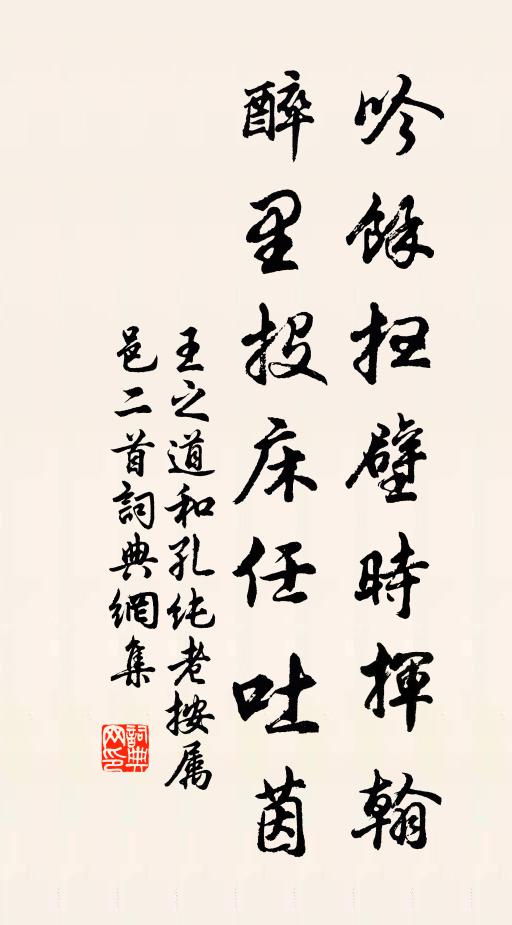 吟餘扫壁時揮翰
醉里投床任吐茵
王之道和孔纯老按属
邑二首詞典網集
詞典
网印